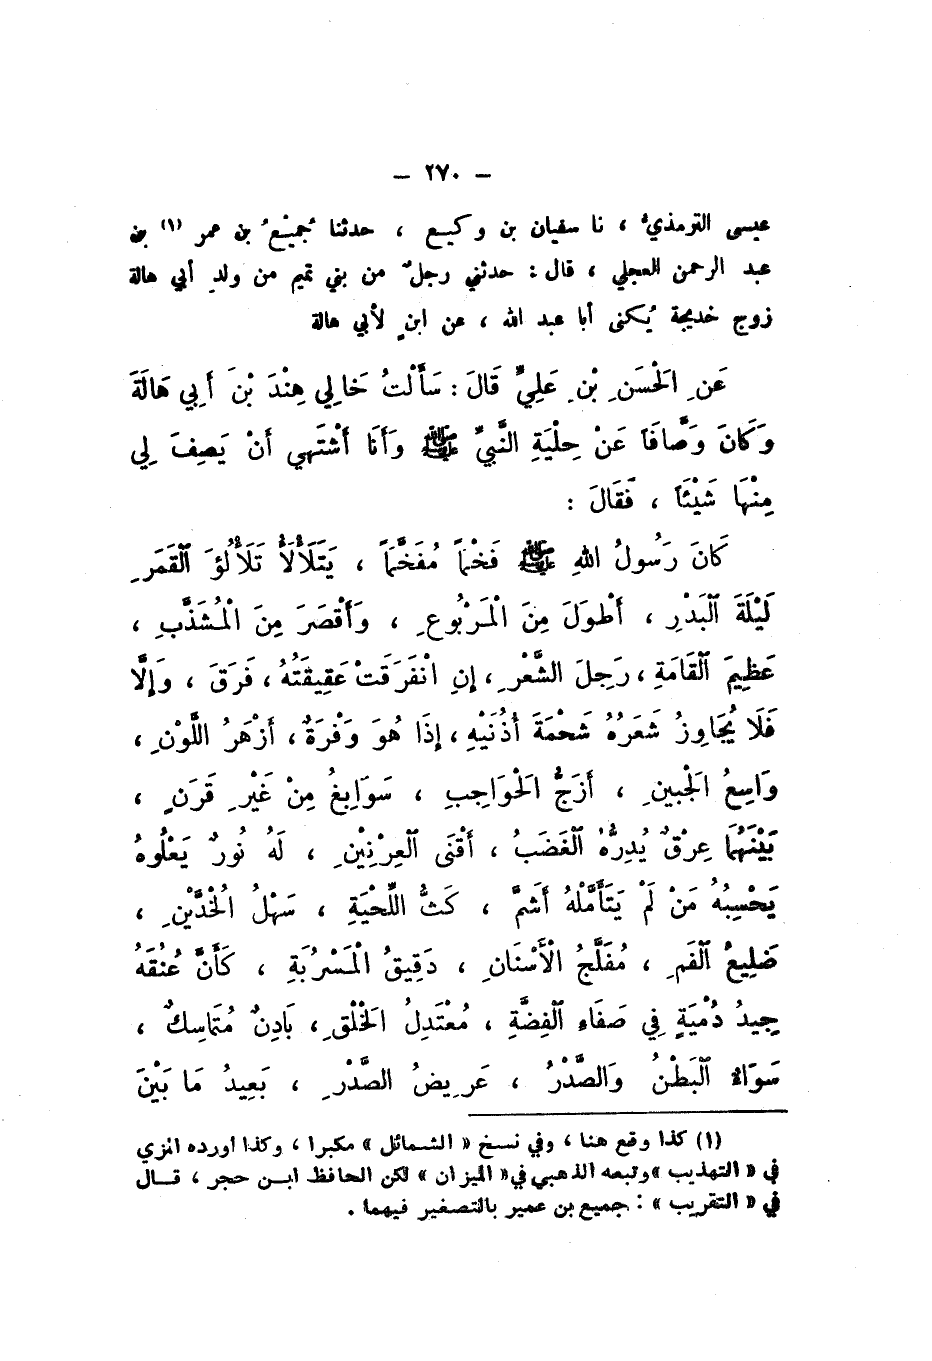 – ٢٧٠ –
عيسى الترمذيُّ ، نا سفيان بن وكيع ، حدثنا جُمَيْعُ بن عمر (١) بن
عبد الرحمن العجلي ، قال : حدثني رجلٌ من بني تميم من ولدِ أبي هالة
زوج خديجة يُكنى أبا عبد الله ، عن ابنٍ لأبي هالة
عَنِ الْحَسَنِ بْنِ عَلِيٍّ قَالَ : سَأَلْتُ خَالِي هِنْدَ بْنَ أَبِي هَالَةَ
وَكَانَ وَصَّافَاً عَنْ حِلْيَةِ النَّبِيِّ ﷺ وَأَنَا أَشْتَهِي أَنْ يَصِفَ لِي
مِنْهَا شَيْئَاً ، فَقَالَ :
كَانَ رَسُولُ اللهِ ﷺ فَخْمَاً مُفَخَّمَاً ، يَتَلَأْلَأُ تَلَأْلُؤَ ٱلْقَمَرِ
لَيْلَةَ ٱلْبَدْرِ ، أَطْوَلَ مِنَ الْمَرْبُوعِ ، وَأَقْصَرَ مِنَ الْمُشَذَّبِ ،
عَظِيمَ ٱلْقَامَةِ ، رَجِلَ الشَّعْرِ ، إِنِ انْفَرَقَتْ عَقِيقَتُهُ ، فَرَقَ ، وَإِلَّا
فَلَا يُجَاوِزُ شَعَرُهُ شَحْمَةَ أُذُنَيْهِ ، إِذَا هُوَ وَفْرَةٌ ، أَزْهَرُ اللَّوْنِ ،
وَاسِعُ الْجَبِينِ ، أَزَجُّ الْحَوَاجِبِ ، سَوَابِغُ مِنْ غَيْرِ قَرَنٍ ،
بَيْنَهُمَا عِرْقٌ يُدِرُّهُ ٱلْغَضَبُ ، أَقْنَى ٱلْعِرْنِيْنِ ، لَهُ نُورٌ يَعْلُوهُ
يَحْسِبُهُ مَنْ لَمْ يَتَأَمَّلْهُ أَشَمَّ ، كَثُّ اللِّحْيَةِ ، سَهْلُ الْخَدَّيْنِ ،
ضَلِيعُ ٱلْفَمِ ، مُفَلَّجُ الْأَسْنَانِ ، دَقِيقُ الْمَسْرُبَةِ ، كَأَنَّ عُنُقَهُ
جِيدُ دُمْيَةٍ فِي صَفَاءِ ٱلْفِضَّةِ ، مُعْتَدِلُ الْخَلْقِ ، بَادِنٌ مُتَمَاسِكٌ ،
سَوَاءُ ٱلْبَطْنُ وَالصَّدْرُ ، عَرِيضُ الصَّدْرِ ، بَعِيدُ مَا بَيْنَ
(١) كذا وقع هنا ، وفي نسخ « الشمائل » مكبرا ، وكذا أورده المزي
في « التهذيب » وتبعه الذهبي في « الميزان » لكن الحافظ ابن حجر ، قال
في « التقريب » : جميع بن عمير بالتصغير فيهما .